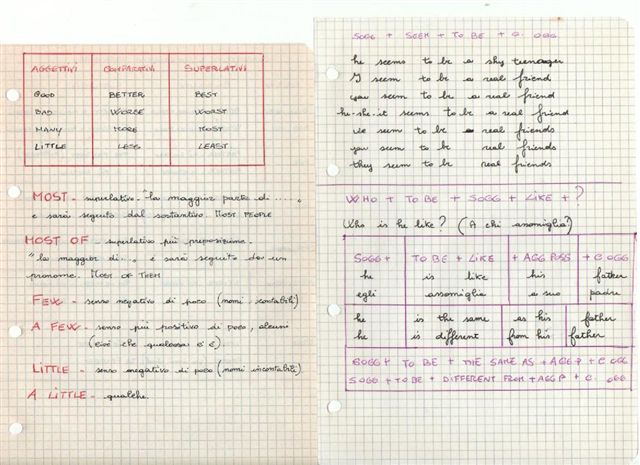 AGGETTIVI COMPARATIVI SUPERLATIVI
GOOD BETTER BEST
BAD WORSE WORST
MANY MORE MOST
LITTLE LESS LEAST
MOST - superlativo "la maggior parte di .....,
e sarà seguito dal sostantivo. MOST PEOPLE
MOST OF - superlativo più preposizione.
"la maggior di...., e sarà seguito da un
pronome. MOST OF THEM
FEW - senso negativo di poco (nomi contabili)
A FEW - senso più positivo di poco, alcuni
(cioè che qualcosa c'è).
LITTLE - senso negativo di poco (nomi incontabili)
A LITTLE - qualche.
SOGG + SEEM + TO BE + C. OGG
he seems to be a shy teenager
I seem to be a real friend
you seem to be a real friend
he-she-it seems to be a real friend
we seem to be real friends
you seem to be real friends
they seem to be real friends
WHO + TO BE + SOGG + LIKE + ?
Who is he like? (A chi assomiglia?)
SOGG + TO BE + LIKE + AGG POSS + C OGG
he is like his father
egli assomiglia a suo padre
he is the same as his father
he is different from his father
SOGG + TO BE + THE SAME AS + AGG P + C OGG
SOGG + TO BE + DIFFERENT FROM + AGG P + C. OGG